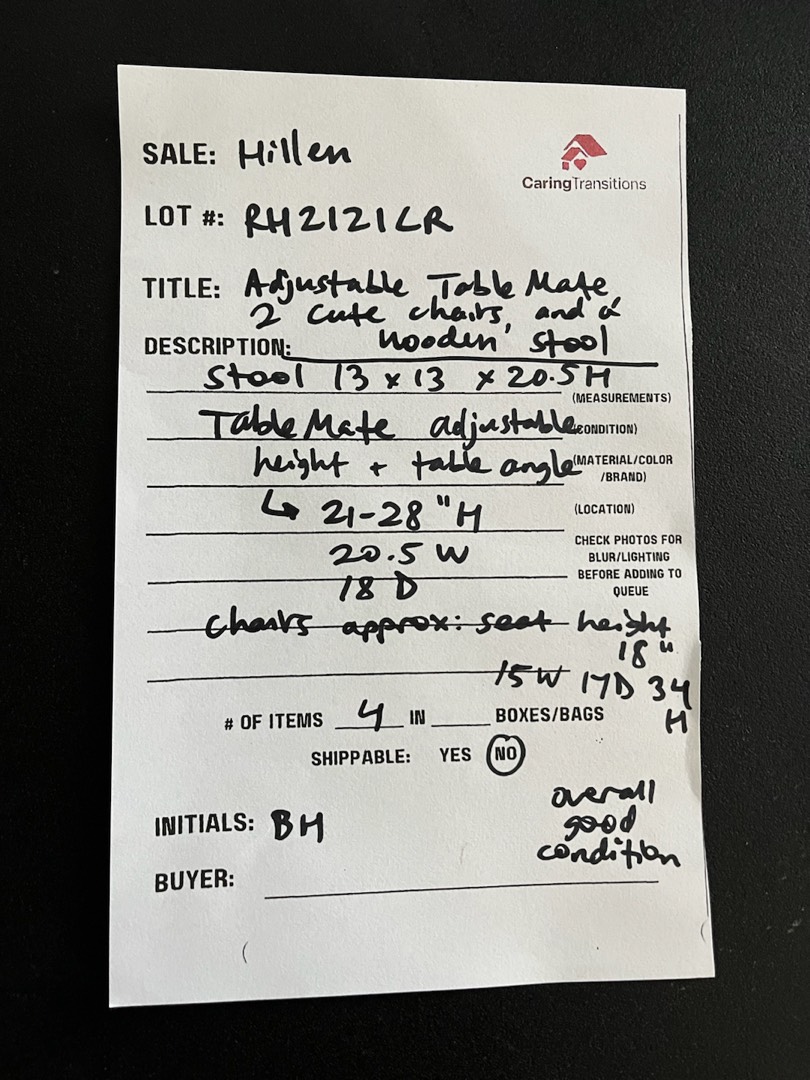 SALE: Hillen
CaringTransitions
LOT #: RH2121LR
TITLE: Adjustable Table Mate,
2 cute chairs, and a
DESCRIPTION: wooden stool
Stool 13 x 13 x 20.5H
(MEASUREMENTS)
Table Mate adjustable (CONDITION)
height + table angle (MATERIAL/COLOR
/BRAND)
↳ 21-28 "H (LOCATION)
20.5 W CHECK PHOTOS FOR
BLUR/LIGHTING
18 D BEFORE ADDING TO
QUEUE
Chairs approx: seat height
18"
15W 17D 34
H
# OF ITEMS 4 IN ____ BOXES/BAGS
SHIPPABLE: YES NO
overall
good
condition
INITIALS: BH
BUYER: